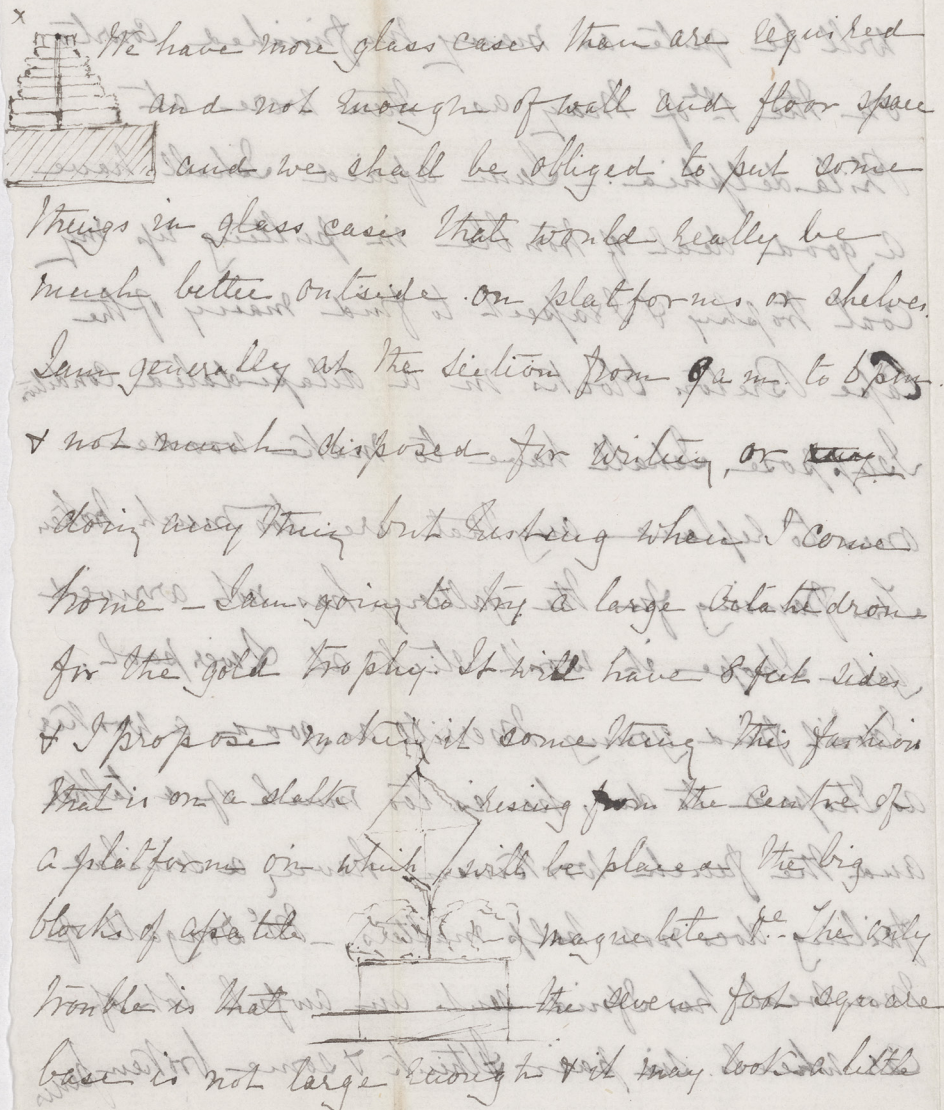 x
We have more glass cases than are required
and not enough of wall and floor space
and we shall be obliged to put some
things in glass cases that would really be
much better outside on platforms or shelves.
I am generally at the section from 9 a m. to 6 pm.
& not much disposed for writing, or
doing any thing but resting when I come
home – I am going to try a large octahedrone
for the gold trophy. It will have 8 feet sides,
& I propose making it something this fashion
that is on a stalk rising from the centre of
a platform on which will be placed the big
blocks of apatite magnetite &c - The only
trouble is that the seven foot square
base is not large enough & it may look a little